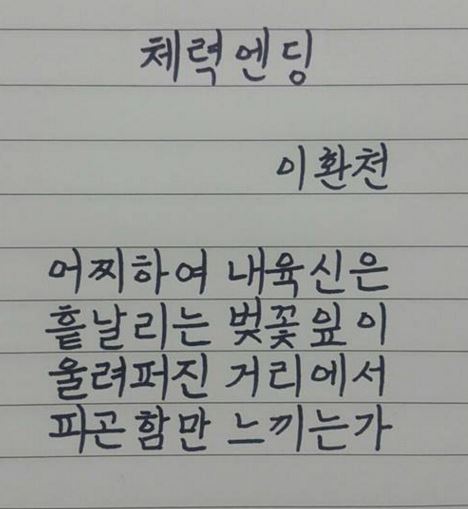 체력엔딩
이환천
어찌하여 내육신은
흩날리는 벚꽃잎이
울려퍼진 거리에서
피곤함만 느끼는가